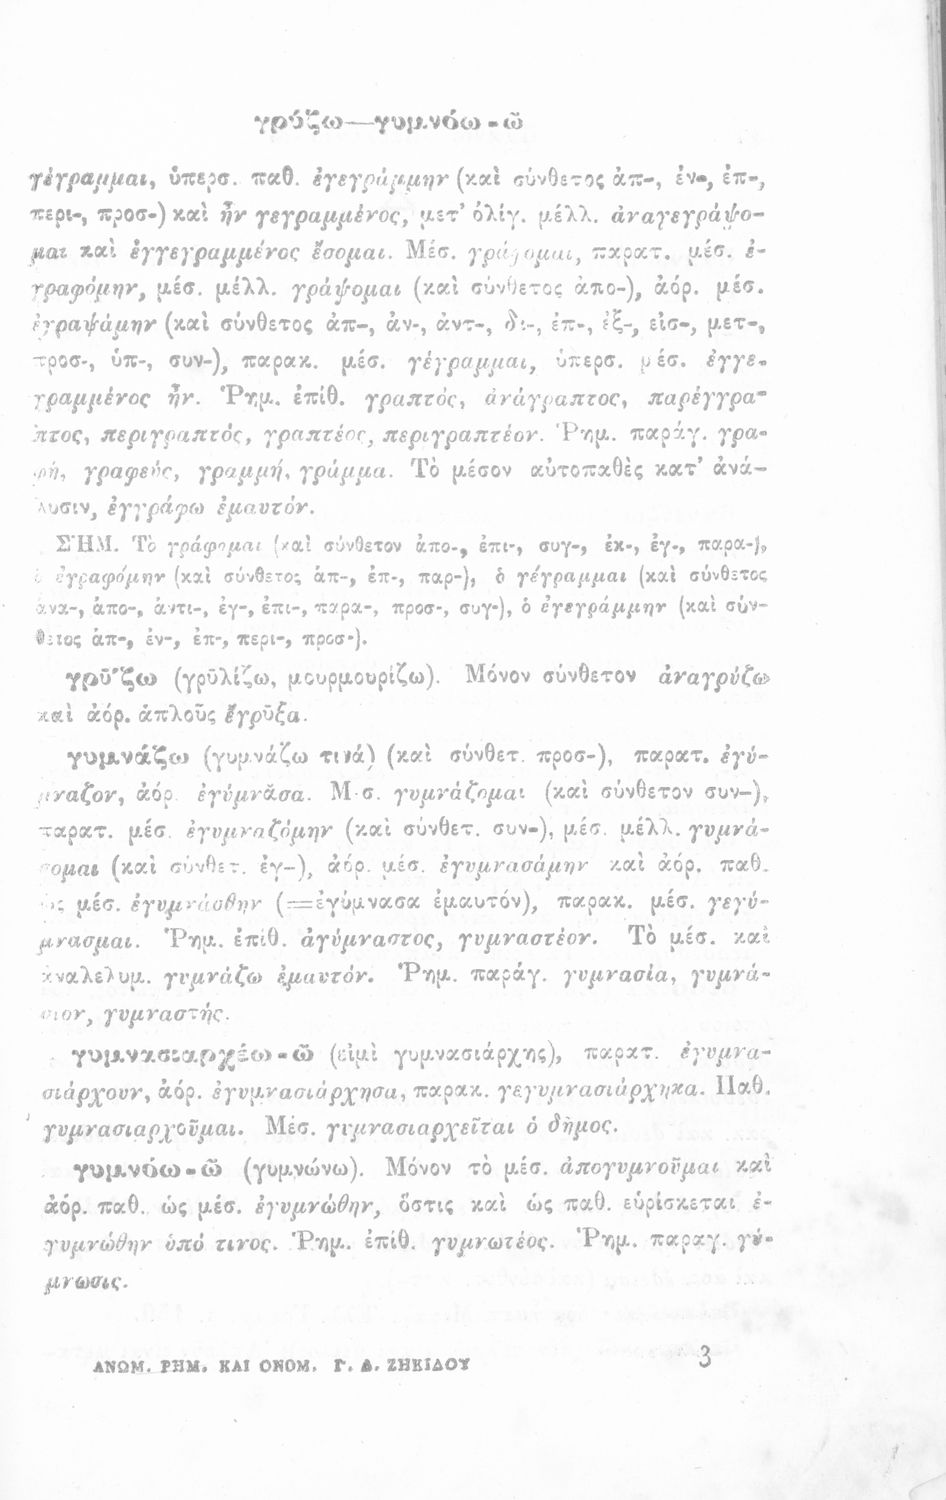 γρύζω—γυμνόω-ῶ
γέγραμμαι, ὑπερσ. παθ. ἐγεγράμμην (καὶ σύνθετος ἀπ-, ἐν-, ἐπ-,
περι-, προσ-) καὶ ἦν γεγραμμένος, μετ’ ὀλίγ. μέλλ. ἀναγεγράψο-
μαι καὶ ἐγγεγραμμένος ἔσομαι. Μέσ. γράφομαι, παρατ. μέσ. ἐ-
γραφόμην, μέσ. μέλλ. γράψομαι (καὶ σύνθετος ἀπο-), ἀόρ. μέσ.
ἐγραψάμην (καὶ σύνθετος ἀπ-, ἀν-, ἀντ-, δι-, ἐπ-, ἐξ-, εἰσ-, μετ-,
προσ-, ὑπ-, συν-), παρακ. μέσ. γέγραμμαι, ὑπερσ. μέσ. ἐγγε-
γραμμένος ἦν. Ῥημ. ἐπίθ. γραπτὸς, ἀνάγραπτος, παρέγγρα-
πτος, περιγραπτὸς, γραπτέος, περιγραπτέον. Ῥημ. παράγ. γρα-
φὴ, γραφεὺς, γραμμή, γράμμα. Τὸ μέσον αὐτοπαθὲς κατ’ ἀνά-
λυσιν, ἐγγράφω ἐμαυτόν.
ΣΗΜ. Τὸ γράφομαι (καὶ σύνθετον ἀπο-, ἐπι-, συγ-, ἐκ-, ἐγ-, παρα-),
ὁ ἐγραφόμην (καὶ σύνθετος ἀπ-, ἐπ-, παρ-), ὁ γέγραμμαι (καὶ σύνθετος
ἀνα-, ἀπο-, ἀντι-, ἐγ-, ἐπι-, παρα-, προσ-, συγ-), ὁ ἐγεγράμμην (καὶ σύν-
θετος ἀπ-, ἐν-, ἐπ-, περι-, προσ-).
γρύζω (γρυλίζω, μουρμουρίζω). Μόνον σύνθετον ἀναγρύζω
καὶ ἀόρ. ἁπλοῦς ἔγρυξα.
γυμνάζω (γυμνάζω τινά) (καὶ σύνθετ. προσ-), παρατ. ἐγύ-
μναζον, ἀόρ. ἐγύμνασα. Μέσ. γυμνάζομαι (καὶ σύνθετον συν-),
παρατ. μέσ. ἐγυμναζόμην (καὶ σύνθετ. συν-), μέσ. μέλλ. γυμνά-
σομαι (καὶ σύνθετ. ἐγ-), ἀόρ. μέσ. ἐγυμνασάμην καὶ ἀόρ. παθ.
ὡς μέσ. ἐγυμνάσθην (=ἐγύμνασα ἐμαυτόν), παρακ. μέσ. γεγύ-
μνασμαι. Ῥημ. ἐπίθ. ἀγύμναστος, γυμναστέον. Τὸ μέσ. καὶ
ἀναλελυμ. γυμνάζω ἐμαυτόν. Ῥημ. παράγ. γυμνασία, γυμνά-
σιον, γυμναστής.
γυμνασιαρχέω-ῶ (εἰμὶ γυμνασιάρχης), παρατ. ἐγυμνα-
σιάρχουν, ἀόρ. ἐγυμνασιάρχησα, παρακ. γεγυμνασιάρχηκα. Παθ.
γυμνασιαρχοῦμαι. Μέσ. γυμνασιαρχεῖται ὁ δῆμος.
γυμνόω-ῶ (γυμνώνω). Μόνον τὸ μέσ. ἀπογυμνοῦμαι καὶ
ἀόρ. παθ. ὡς μέσ. ἐγυμνώθην, ὅστις καὶ ὡς παθ. εὑρίσκεται ἐ-
γυμνώθην ὑπό τινος. Ῥημ. ἐπίθ. γυμνωτέος. Ῥημ. παραγ. γύ-
μνωσις.
ΑΝΩΜ. ΡΗΜ. ΚΑΙ ΟΝΟΜ. Γ. Δ. ΖΗΚΙΔΟΥ 3